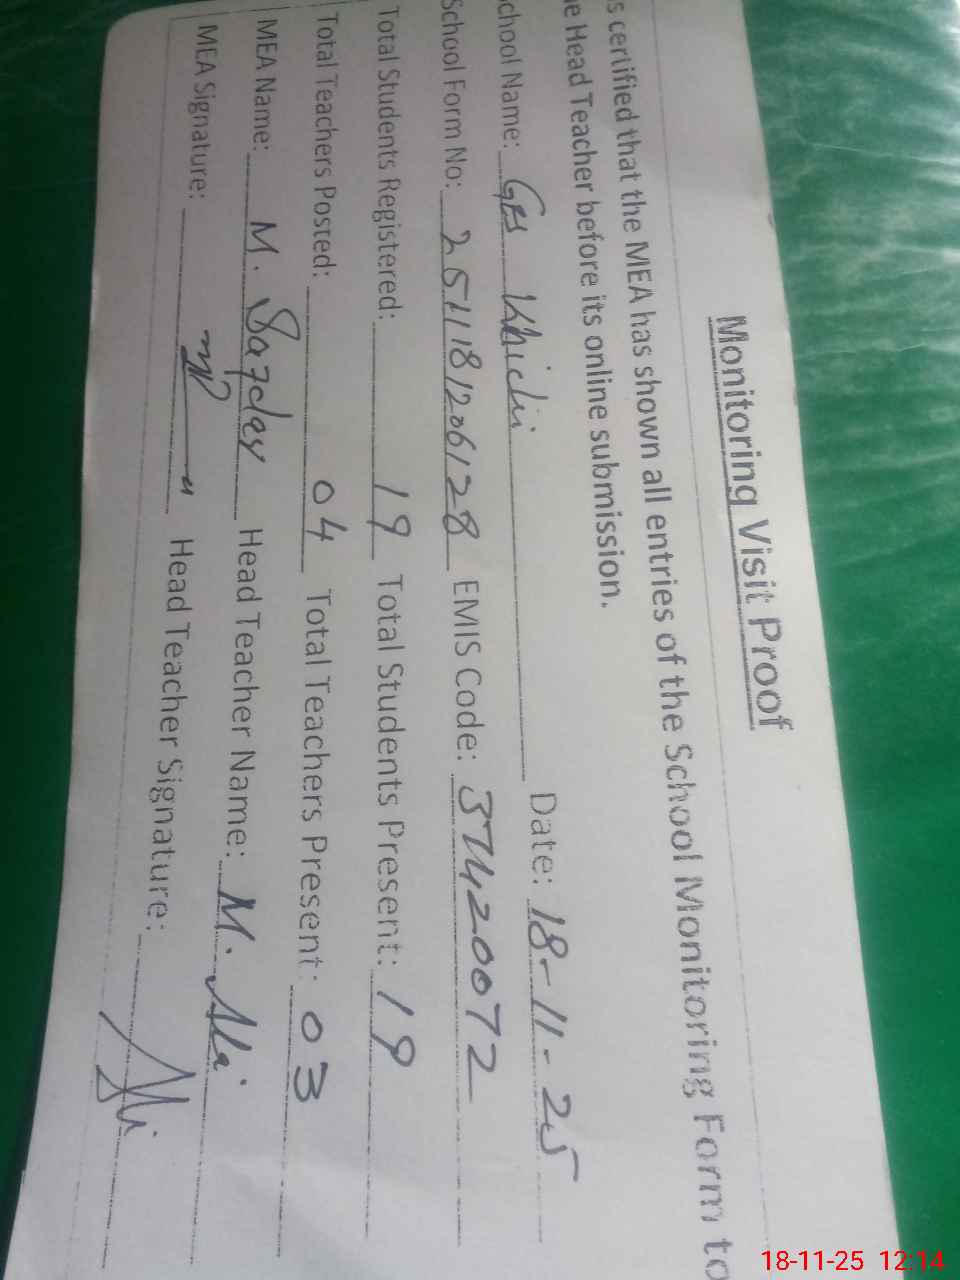 Monitoring Visit Proof
s certified that the MEA has shown all entries of the School Monitoring Form to
e Head Teacher before its online submission.
chool Name: GPS Khichi Date: 18-11-25
School Form No: 2511181206128 EMIS Code: 37420072
Total Students Registered: 19 Total Students Present: 19
Total Teachers Posted: 04 Total Teachers Present: 03
MEA Name: M. Safdar Head Teacher Name: M. Ali
MEA Signature: Head Teacher Signature: Ali
18-11-25 12:14